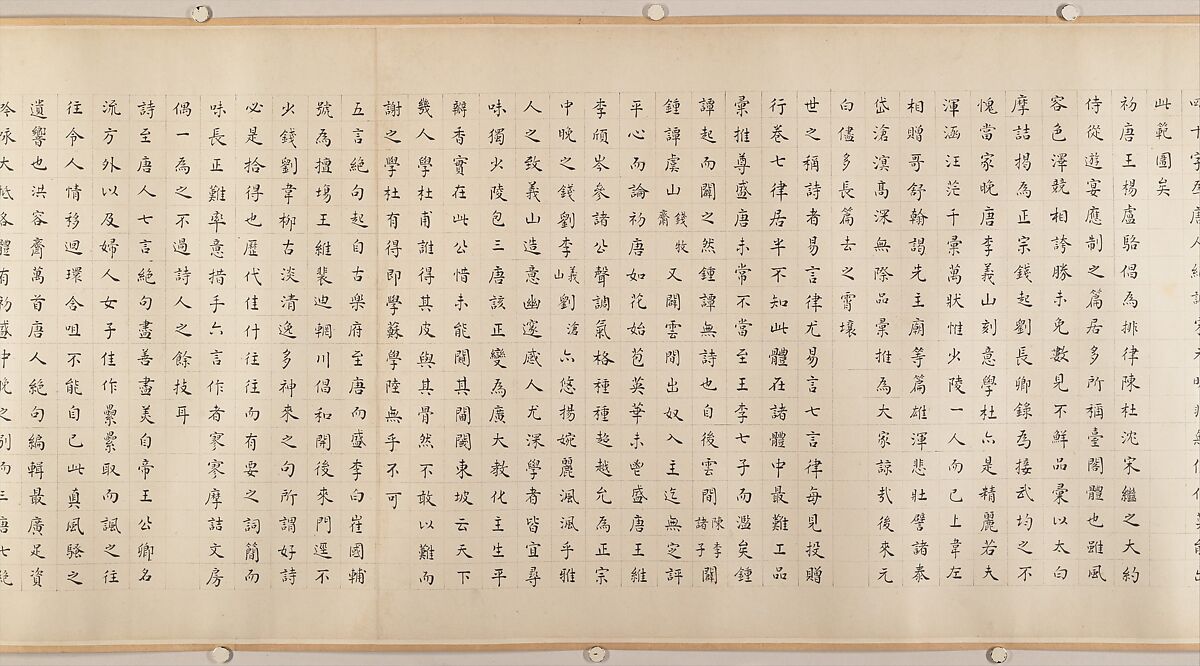 此範圍矣
初唐王楊盧駱倡為排律陳杜沈宋繼之大約
侍從遊宴應制之篇居多所稱臺閣體也雖風
容色澤競相誇勝未免數見不鮮品彙以太白
摩詰揭為正宗錢起劉長卿錄為接武均之不
愧當家晚唐李義山刻意學杜亦是精麗若夫
渾涵汪茫千彙萬狀惟少陵一人而已上韋左
相贈哥舒翰謁先主廟等篇雄渾悲壯譬諸泰
岱滄溟高深無際品彙推為大家諒哉後來元
白儘多長篇去之霄壤
世之稱詩者易言律尤易言七言律每見投贈
行卷七律居半不知此體在諸體中最難工品
彙推尊盛唐未常不當至王李七子而濫矣鍾
譚起而闢之然鍾譚無詩也自後雲間陳李諸子闢
鍾譚虞山錢牧齋又闢雲間出奴入主迄無定評
平心而論初唐如花始苞英華未鬯盛唐王維
李頎岑參諸公聲調氣格種種超越允為正宗
中晚之錢劉李義山劉滄亦悠揚婉麗渢渢乎雅
人之致義山造意幽邃感人尤深學者皆宜尋
味獨少陵包三唐該正變為廣大教化主生平
瓣香實在此公惜未能闖其閫闑東坡云天下
幾人學杜甫誰得其皮與其骨然不敢以難而
謝之學杜有得即學蘇學陸無乎不可
五言絕句起自古樂府至唐而盛李白崔國輔
號為擅場王維裴迪輞川倡和開後來門逕不
少錢劉韋柳古淡清逸多神來之句所謂好詩
必是拾得也歷代佳什往往而有要之詞簡而
味長正難率意措手六言作者寥寥摩詰文房
偶一為之不過詩人之餘技耳
詩至唐人七言絕句盡善盡美自帝王公卿名
流方外以及婦人女子佳作纍纍取而諷之往
往令人情移迴環含咀不能自已此真風騷之
遺響也洪容齋萬首唐人絕句編輯最廣足資
吟咏大抵各體有初盛中晚之別而三唐七絕